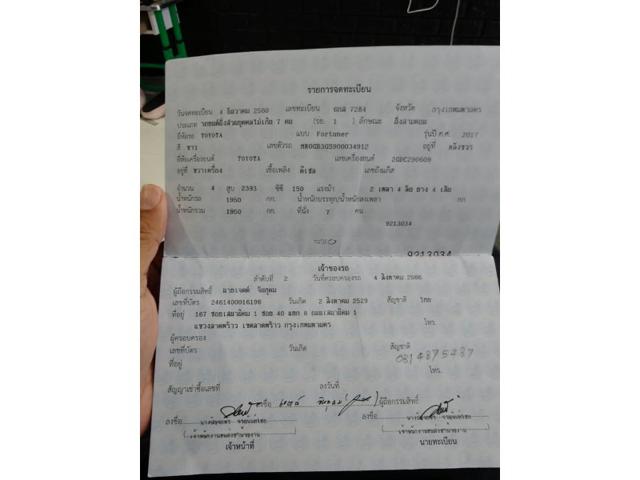 รายการจดทะเบียน
วันจดทะเบียน 4 ธันวาคม 2560 เลขทะเบียน 7284 จังหวัด กรุงเทพมหานคร
ประเภท รถยนต์นั่งส่วนบุคคลไม่เกิน 7 คน (รย. 1 ) ลักษณะ นั่งสามตอน
ยี่ห้อรถ TOYOTA แบบ Fortuner รุ่นปี ค.ศ. 2017
สี ขาว เลขตัวรถ อยู่ที่
ยี่ห้อเครื่องยนต์ TOYOTA เลขเครื่องยนต์ 2GDC290609
อยู่ที่ ขวาเครื่อง เชื้อเพลิง ดีเซล เลขถังแก๊ส
จำนวน 4 สูบ 2393 ซีซี 150 แรงม้า 2 เพลา 4 ล้อ ยาง 4 เส้น
น้ำหนักรถ 1950 กก. น้ำหนักบรรทุก/น้ำหนักลงเพลา กก
น้ำหนักรวม 1950 กก. ที่นั่ง 7 คน
9213034
9213034
เจ้าของรถ
ลำดับที่ 2 วันที่ครอบครองรถ 4 สิงหาคม 2566
ผู้ถือกรรมสิทธิ์
เลขที่บัตร 2461400016196 วันเกิด 2 สิงหาคม 2529 สัญชาติ ไทย
ที่อยู่ 167 1 ซอย 40 แยก 1
แขวงลาดพร้าว เขตลาดพร้าว กรุงเทพมหานคร โทร.
ผู้ครอบครอง
เลขที่บัตร วันเกิด สัญชาติ
ที่อยู่ 081 4875487
โทร.
สัญญาเช่าซื้อเลขที่ ลงวันที่
ลงชื่อ ผู้ถือกรรมสิทธิ์
ลงชื่อ ลงชื่อ
เจ้าหน้าที่ นายทะเบียน